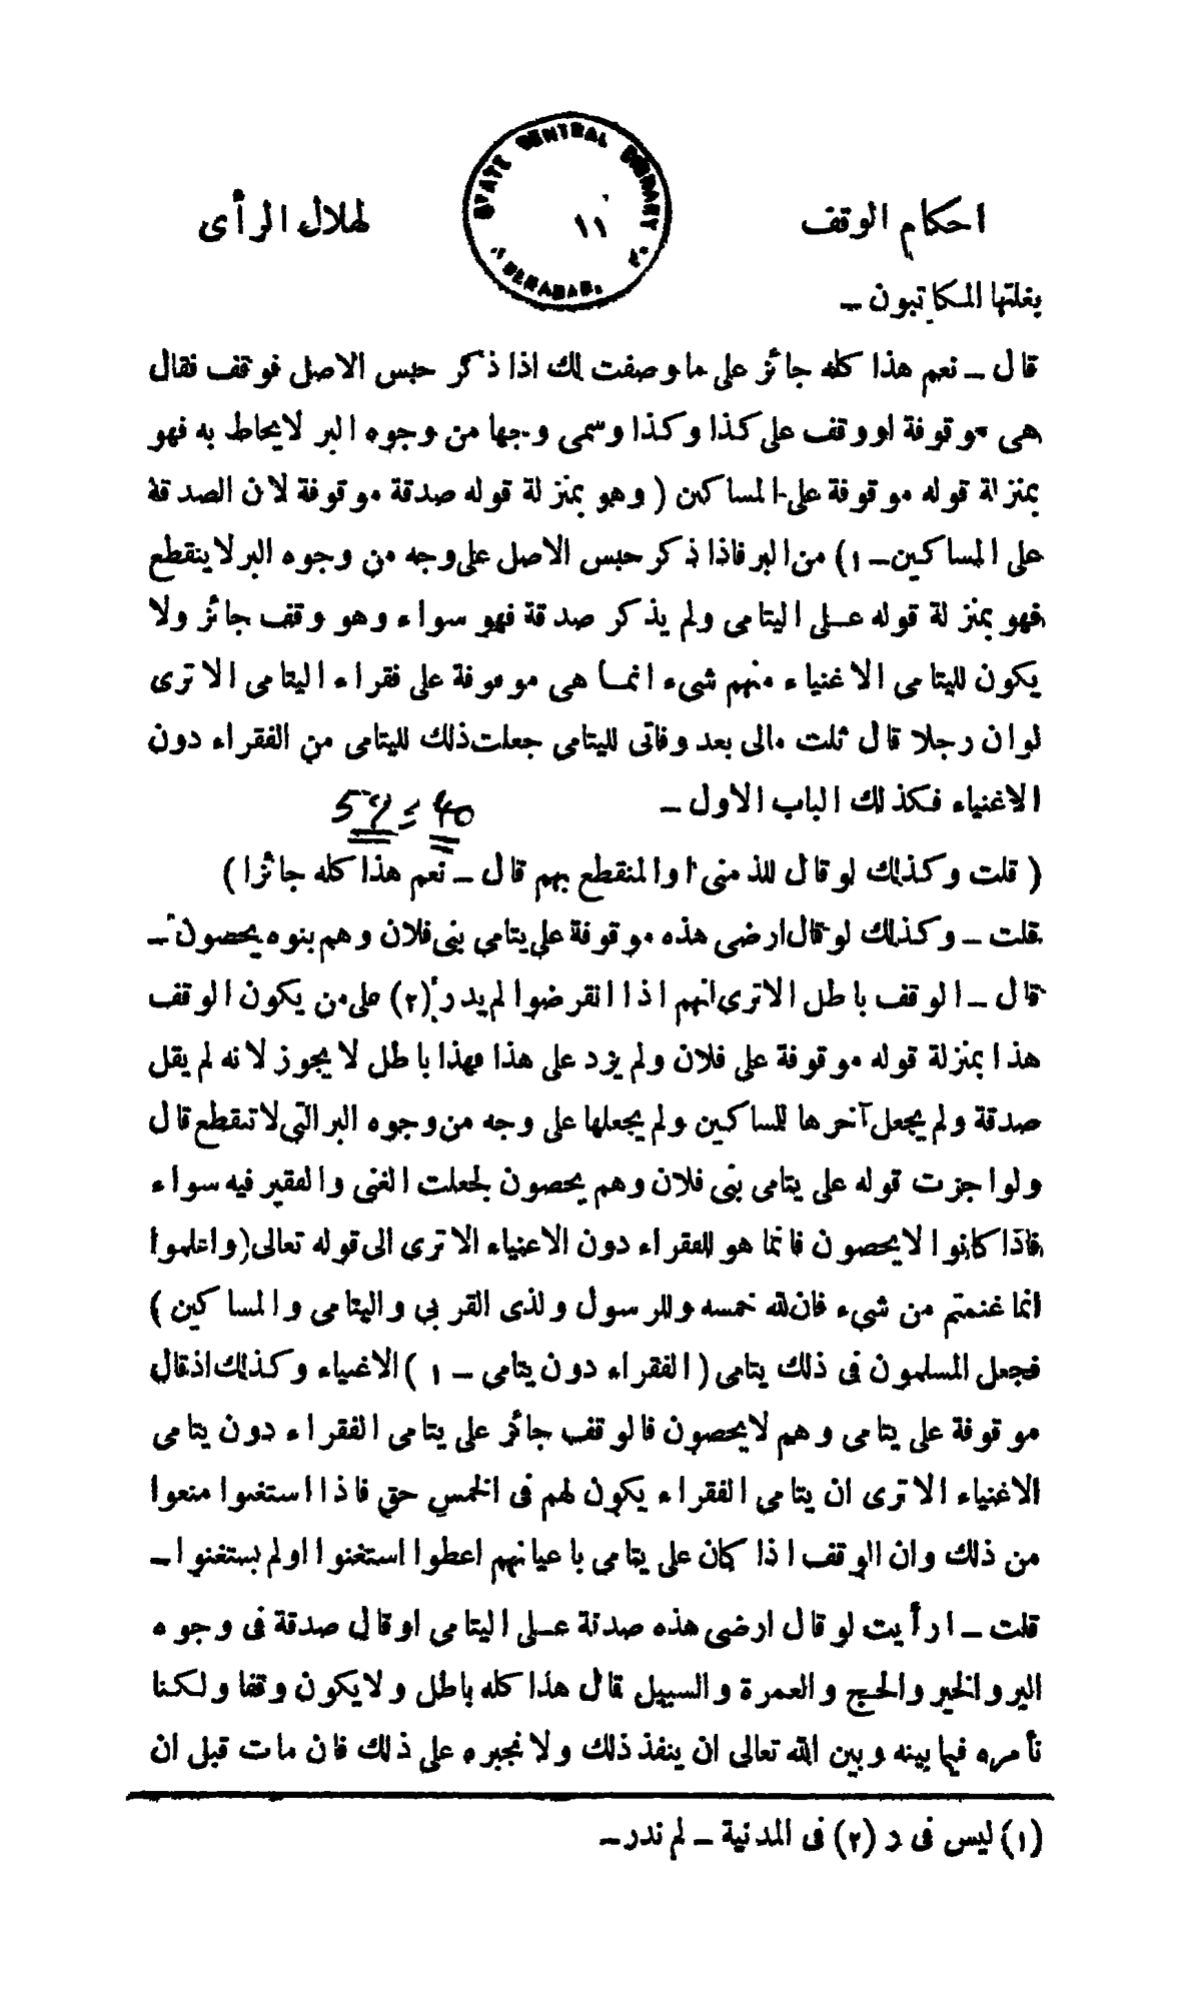 احكام الوقف
STATE CENTRAL LIBRARY
١١
لهلال الرأى
يغلتها المكاتبون ـ
قال ـ نعم هذا كله جائز على ما وصفت لك اذا ذكر حبس الاصل فوقف فقال
هى موقوفة او وقف على كذا وكذا وسمى وجها من وجوه البر لايحاط به فهو
بمنزلة قوله موقوفة على المساكين ( وهو بمنزلة قوله صدقة موقوفة لان الصدقة
على المساكين ـ ١) من البر فاذا ذكر حبس الاصل على وجه من وجوه البر لاينقطع
فهو بمنزلة قوله عــلى اليتامى ولم يذكر صدقة فهو سواء وهو وقف جائز ولا
يكون لليتامى الاغنياء منهم شىء انمــا هى موقوفة على فقراء اليتامى الا ترى
لوان رجلا قال ثلت مالى بعد وفاتى لليتامى جعلت ذلك لليتامى من الفقراء دون
الاغنياء فكذلك الباب الاول ـ
( قلت وكذلك لو قال للذمنى او المنقطع بهم قال ـ نعم هذا كله جائزا )
قلت ـ وكذلك لو قال ارضى هذه موقوفة على يتامى بنى فلان وهم بنوه يحصون ـ
قال ـ الوقف باطل الا ترى انهم اذا انقرضوا لم يدر (٢) على من يكون الوقف
هذا بمنزلة قوله موقوفة على فلان ولم يزد على هذا فهذا باطل لا يجوز لانه لم يقل
صدقة ولم يجعل آخرها للمساكين ولم يجعلها على وجه من وجوه البر التى لاتنقطع قال
ولو اجزت قوله على يتامى بنى فلان وهم يحصون لجعلت الغنى والفقير فيه سواء
فاذا كانوا لايحصون فانما هو للفقراء دون الاغنياء الا ترى الى قوله تعالى (واعلموا
انما غنمتم من شىء فان لله خمسه وللرسول ولذى القربى واليتامى والمساكين )
فجعل المسلمون فى ذلك يتامى ( الفقراء دون يتامى ـ ١ ) الاغنياء وكذلك اذقال
موقوفة على يتامى وهم لايحصون فالوقف جائز على يتامى الفقراء دون يتامى
الاغنياء الا ترى ان يتامى الفقراء يكون لهم فى الخمس حق فاذا استغنوا منعوا
من ذلك وان الوقف اذا كان على يتامى باعيانهم اعطوا استغنوا اولم يستغنوا ـ
قلت ـ ارأيت لو قال ارضى هذه صدقة عــلى اليتامى اوقال صدقة فى وجوه
البر والخير والحج والعمرة والسبيل قال هذا كله باطل ولايكون وقفا ولكنا
نأمره فيما بينه وبين الله تعالى ان ينفذ ذلك ولا نجبره على ذلك فان مات قبل ان
(١) ليس فى ر (٢) فى المدنية ـ لم ندر ـ